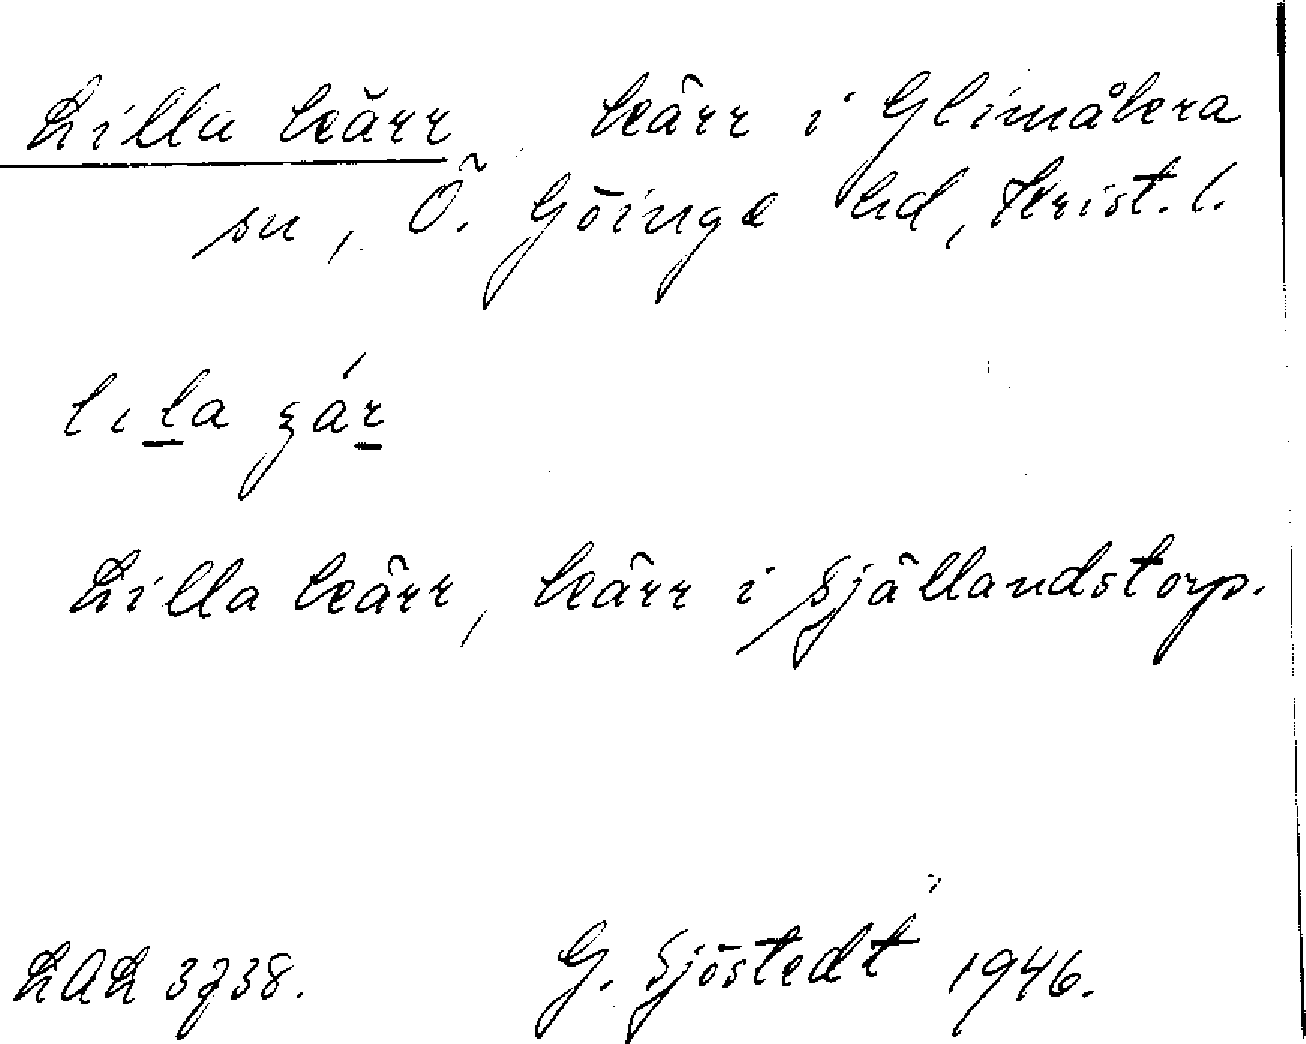 Lilla kärr, kärr i Glimåkra
sn, Ö. Göinge hd, Krist. l.
Lilla kärr, kärr i Själlandstorp.
LAL 3738. G. Sjöstedt 1946.